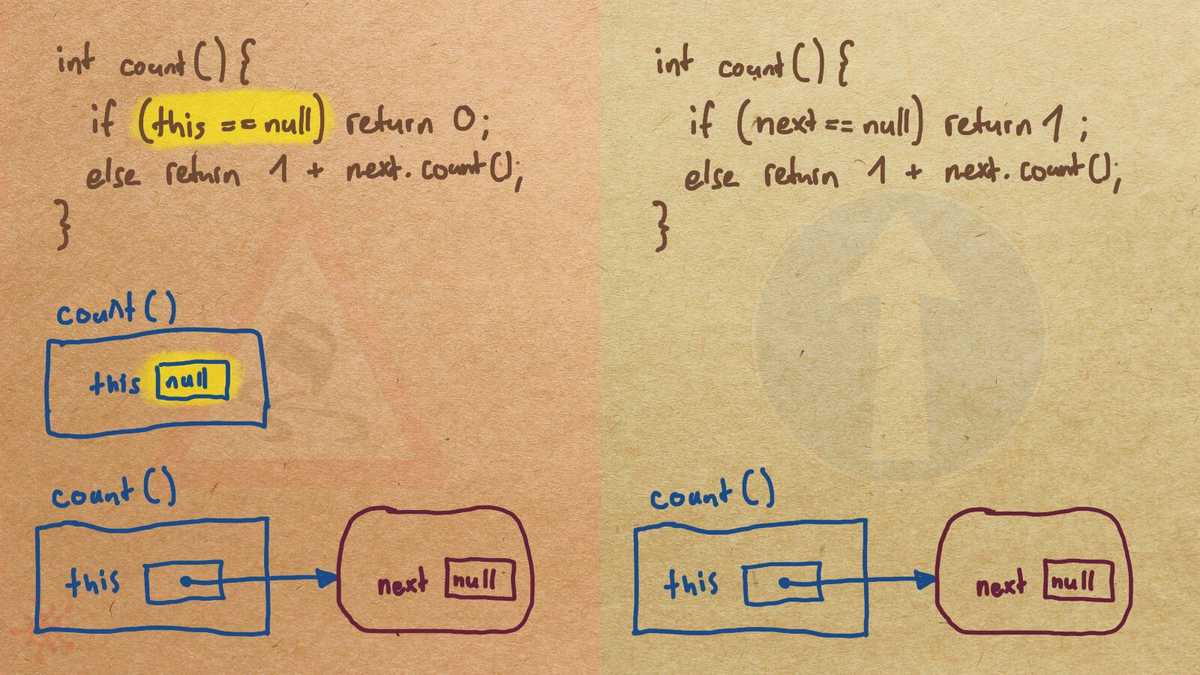 int count() {
if (this == null) return 0;
else return 1 + next.count();
}
count()
this null
count()
this
next null
int count() {
if (next == null) return 1;
else return 1 + next.count();
}
count()
this
next null